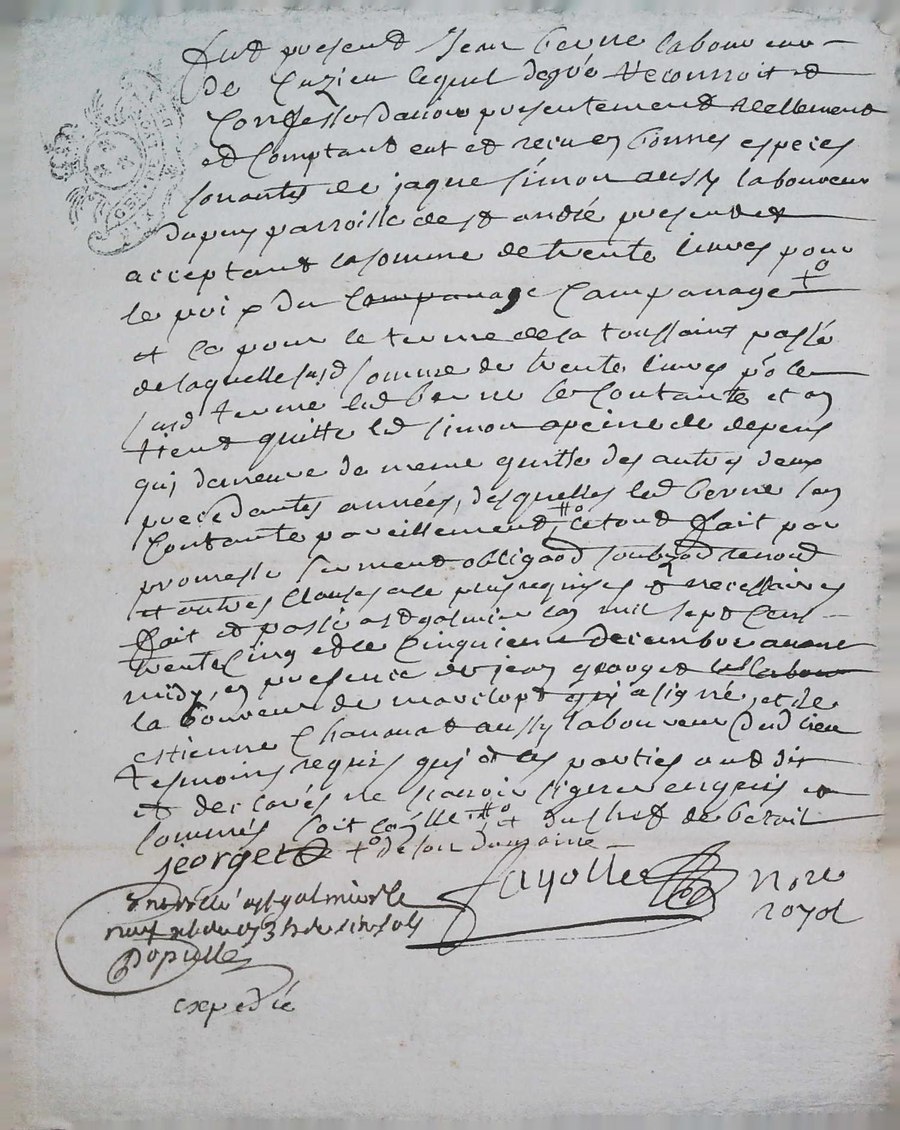 Fut present Jean berne laboureur
de Cuzieu lequel degré reconnoit et
Confesse davoir presentement reellement
et Comptant eut et receu en bonnes especes
sonantes de jaque simon aussy laboureur
parroisse de st andré present et
acceptant la somme de trente livres pour
le prix du Companage Campanage +o
et ce pour le terme de la toussaint passé
de laquelle susd somme de trente livres po le
susd terme led berne se Contante et en
tient quitte led simon a peine de depens
qui demeure de meme quitte des autres deux
precedantes années, desquelles led berne sen
Contante pareillement #o le tout fait par
promesse serment obligaõn renond
et autres clauses a ce plus requises et necessaires
fait et passé a st galmier lan mil sept Cens
trente cinq et le Cinquieme decembre avant
midy, en presence de jean georget les labour
laboureur de marclopt qui a signé, et de
estienne aussy laboureur dud lieu
tesmoins requis qui et les parties ont dit
et declarés ne scavoir signer enquis et
sommés soit #o et du chef de betail
jeorget +o de son domaine
Fayolle nore
royal
st galmier le

expedié